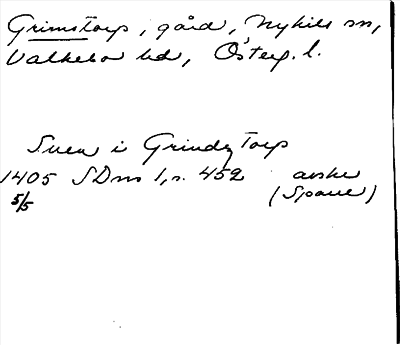 Grimstorp, gård, Nykils sn,
Valkebo hd, Österg. l.
Sven i Grindztorp
1405 SDns 1, s. 452 avskr
5/5 (Sparre)